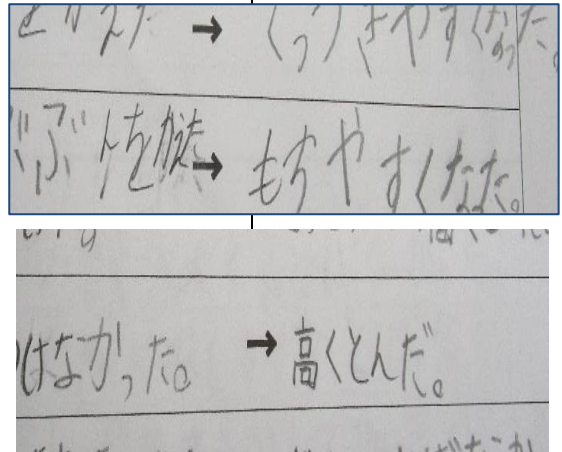 をかえた → くっつきやすくなった。
ぶぶんをかえた → もちやすくなった。
はなかった。 → 高くとんだ。